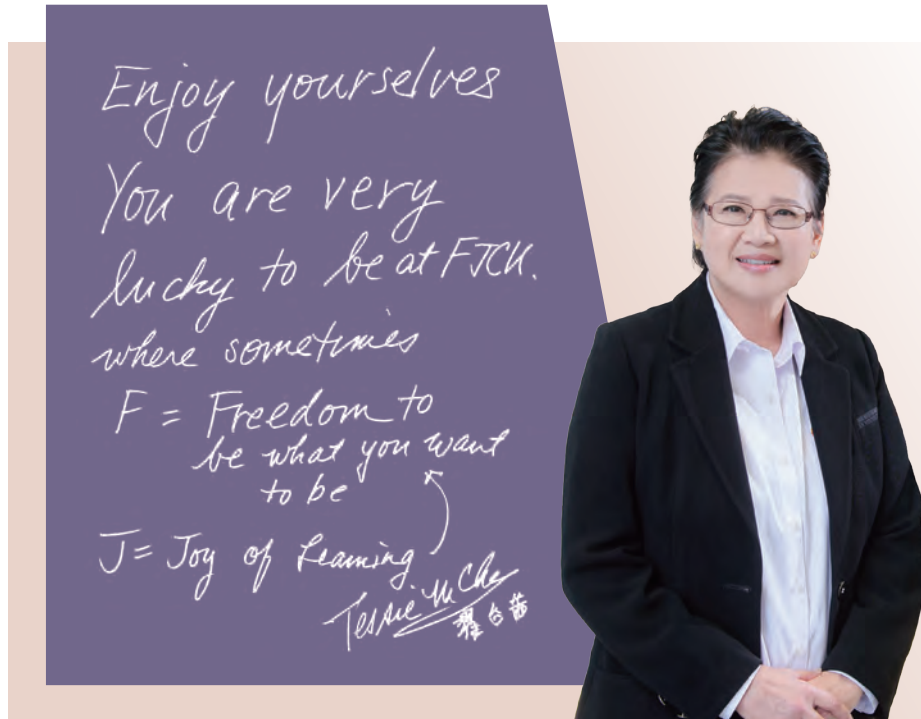 Enjoy yourselves
You are very
lucky to be at FJCU.
where sometimes
F = Freedom to
be what you want
to be
J = Joy of Learning
Tessie M Che
翟台茜